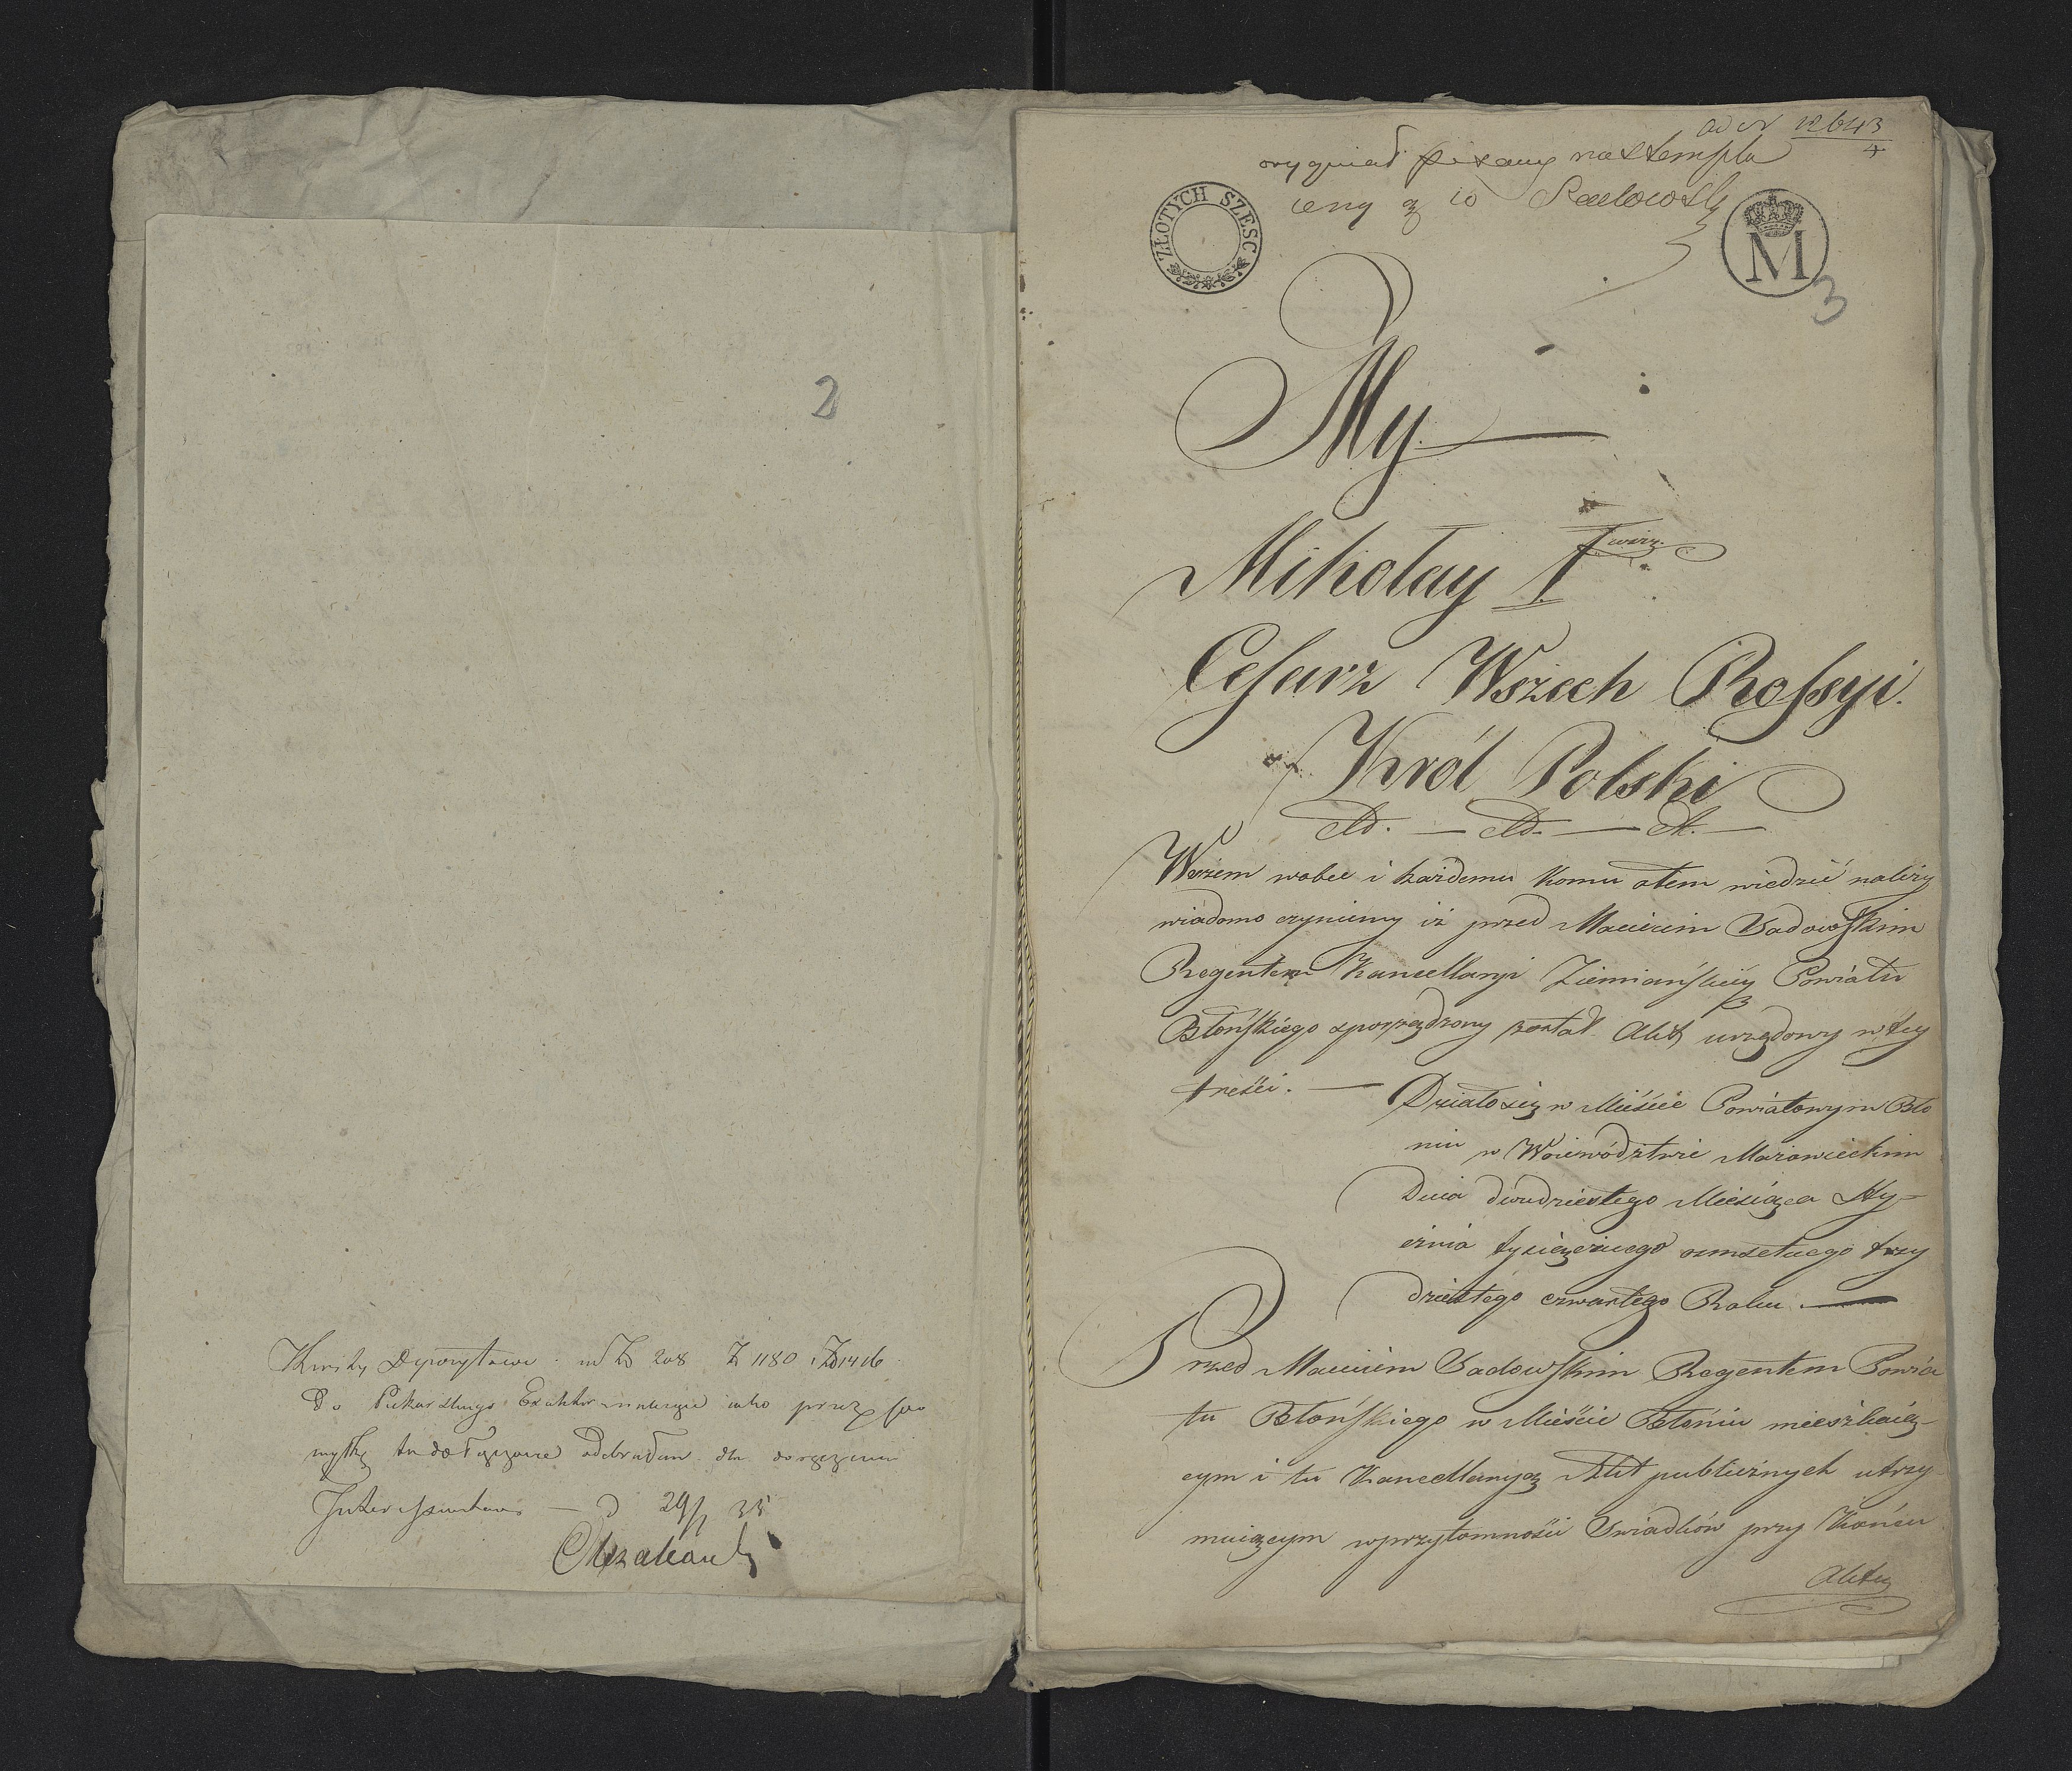 2
Kwity Depozytowe na Zł 208 Zł 1180 i Zł 1416
Do Piekarskiego
tu dołączone odebrałem dla doręczenia
Interessantowi — d 29/1 35
ad N 12643/4
oryginał pisany na stemplu
ceny zł 10 Sadowski
ZŁOTYCH SZESC
M
3
My
Mikołay I wszy.
Cesarz Wszech Rossyi.
Król Polski
etd. — etd. — etc. —
Wszem wobec i każdemu komu otem wiedzić należy
wiadomo czyniemy iż przed Macieiem Sadowskim
Regentem Kancellaryi Ziemiańskiey Powiatu
Błońskiego sporządzony został Akt urzędowy w tey
treści. — Działo się w Mieście Powiatowym Bło
niu w Woiewództwie Mazowieckim
Dnia dwudziestego Miesiąca Sty=
cznia tysiącznego osmsetnego trzy
dziestego czwartego Roku. —
Przed Macieiem Sadowskim Regentem Powia
tu Błońskiego w Mieście Błoniu mieszkaią=
cym i tu Kancellaryą Akt publicznych utrzy
muiącym w przytomności Swiadków przy Końcu
Aktu